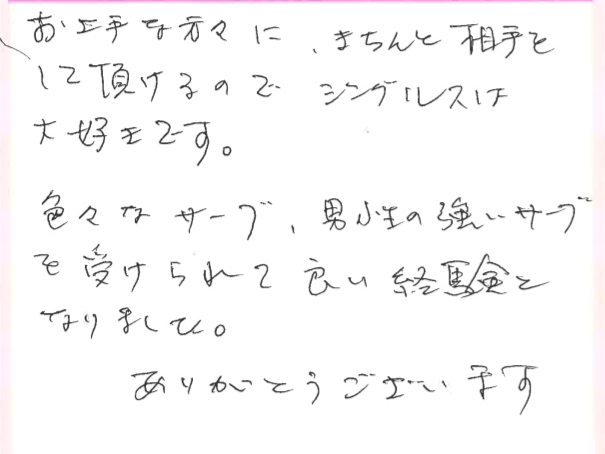 お上手な方々に、きちんと相手を
して頂けるので シングルスは
大好きです。
色々なサーブ、男性の強いサーブ
を受けられて良い経験と
なりました。
ありがとうございます